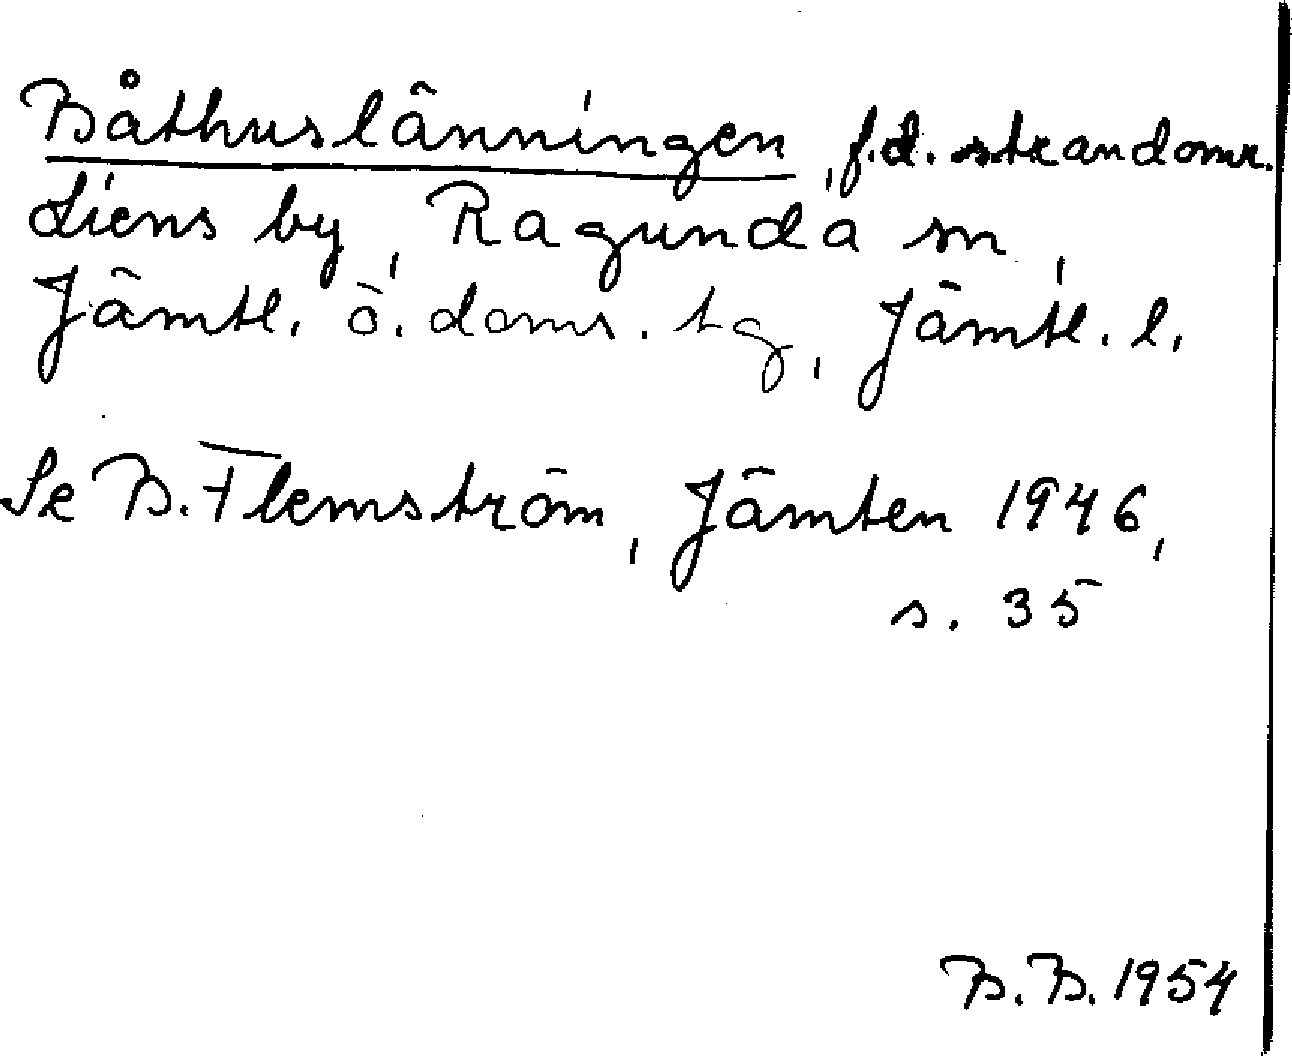 Båthuslänningen, f.d. strandomr.
Liens by, Ragunda sn,
Jämtl. ö. doms. tg, Jämtl. l.
Se B. Flemström, Jämten 1946,
s. 35
B. B. 1954